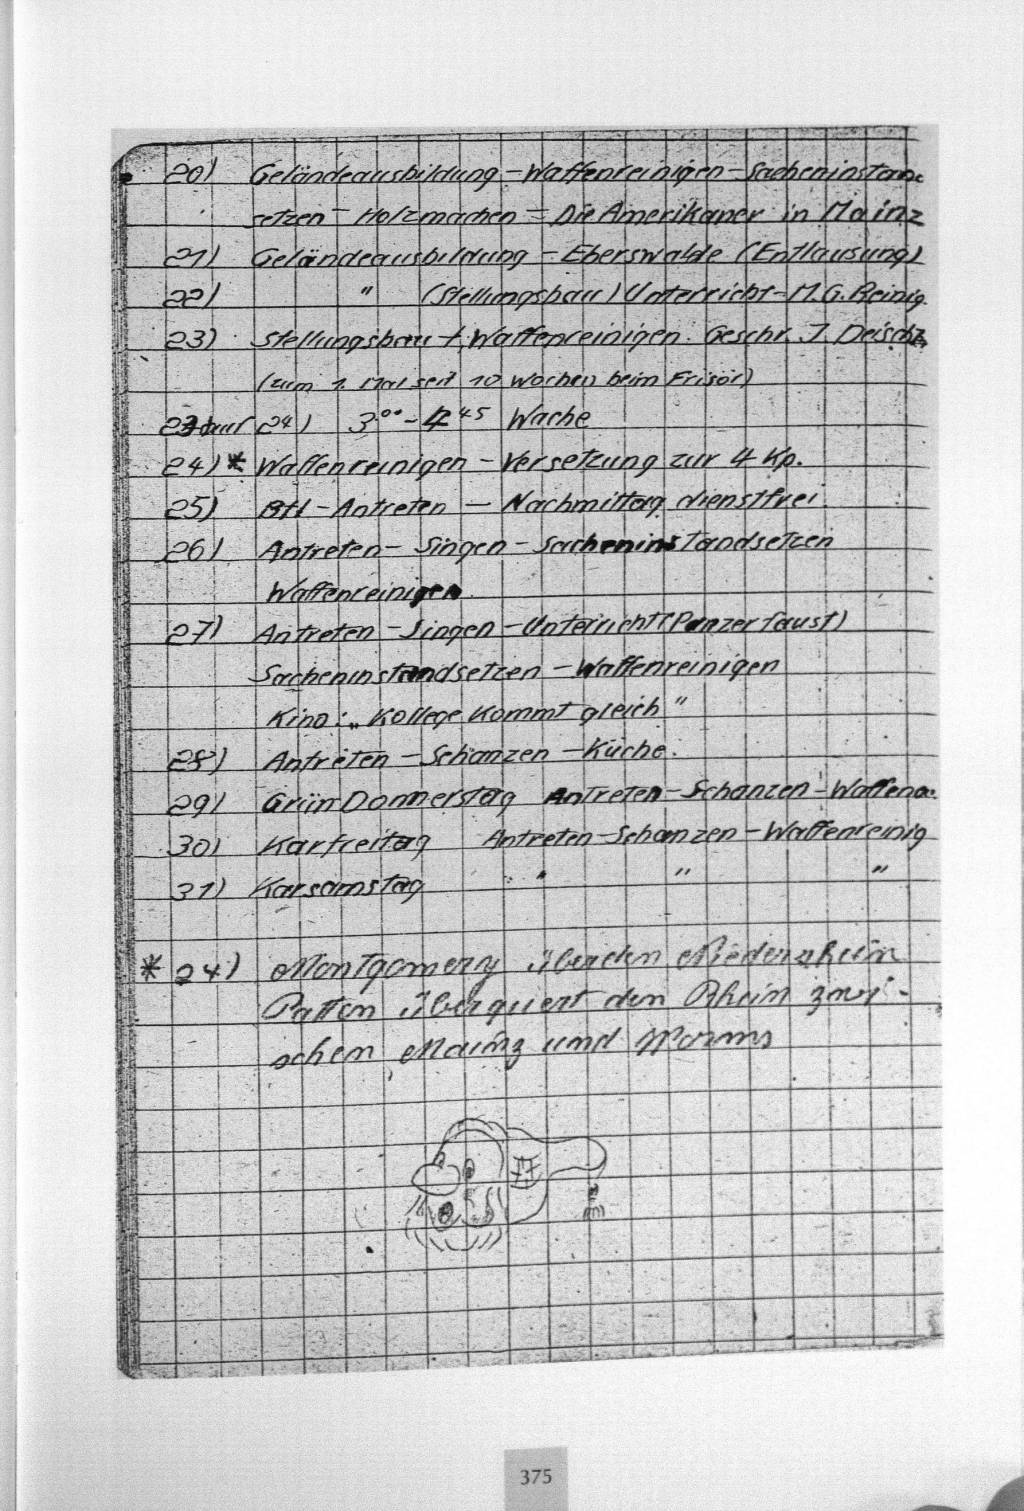 20) Geländeausbildung – Waffenreinigen – Sacheninstand
setzen – Holzmachen – Die Amerikaner in Mainz
21) Geländeausbildung – Eberswalde (Entlausung)
22) " (Stellungsbau) Unterricht – M.G. Reinig.
23) Stellungsbau + Waffenreinigen. Geschr. J.
(zum 1. Mal seit 10 Wochen beim Frisör)
23 auf 24) 3⁰⁰ – 4⁴⁵ Wache
24) * Waffenreinigen – Versetzung zur 4 Kp.
25) Btl – Antreten — Nachmittag dienstfrei.
26) Antreten – Singen – Sacheninstandsetzen
Waffenreinigen.
27) Antreten – Singen – Unterricht (Panzerfaust)
Sacheninstandsetzen – Waffenreinigen
Kino: „Kollege kommt gleich"
28) Antreten – Schanzen – Küche.
29) GrünDonnerstag Antreten – Schanzen – Waffen
30) Karfreitag Antreten – Schanzen – Waffenreinig
31) Karsamstag " " "
* 24) Montgomery über den Niederrhein
Patton überquert den Rhein zwi-
schen Mainz und Worms
375